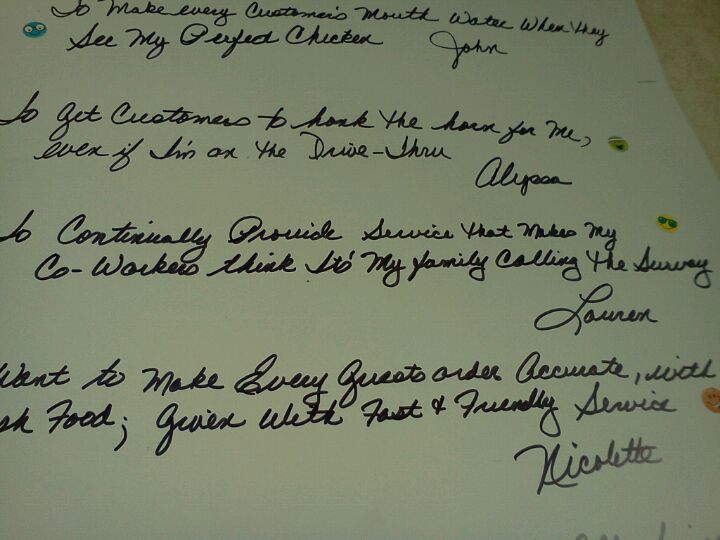 To Make every Customers Mouth Water When they
See My Perfect Chicken John
To Get Customers to honk the horn for Me,
even if I'm on the Drive-Thru
Alyssa
To Continually Provide Service that Makes My
Co-Workers think It's My family Calling the Survey
Lauren
Want to Make Every Guests order Accurate, with
Food; Given With Fast & Friendly Service
Nicolette